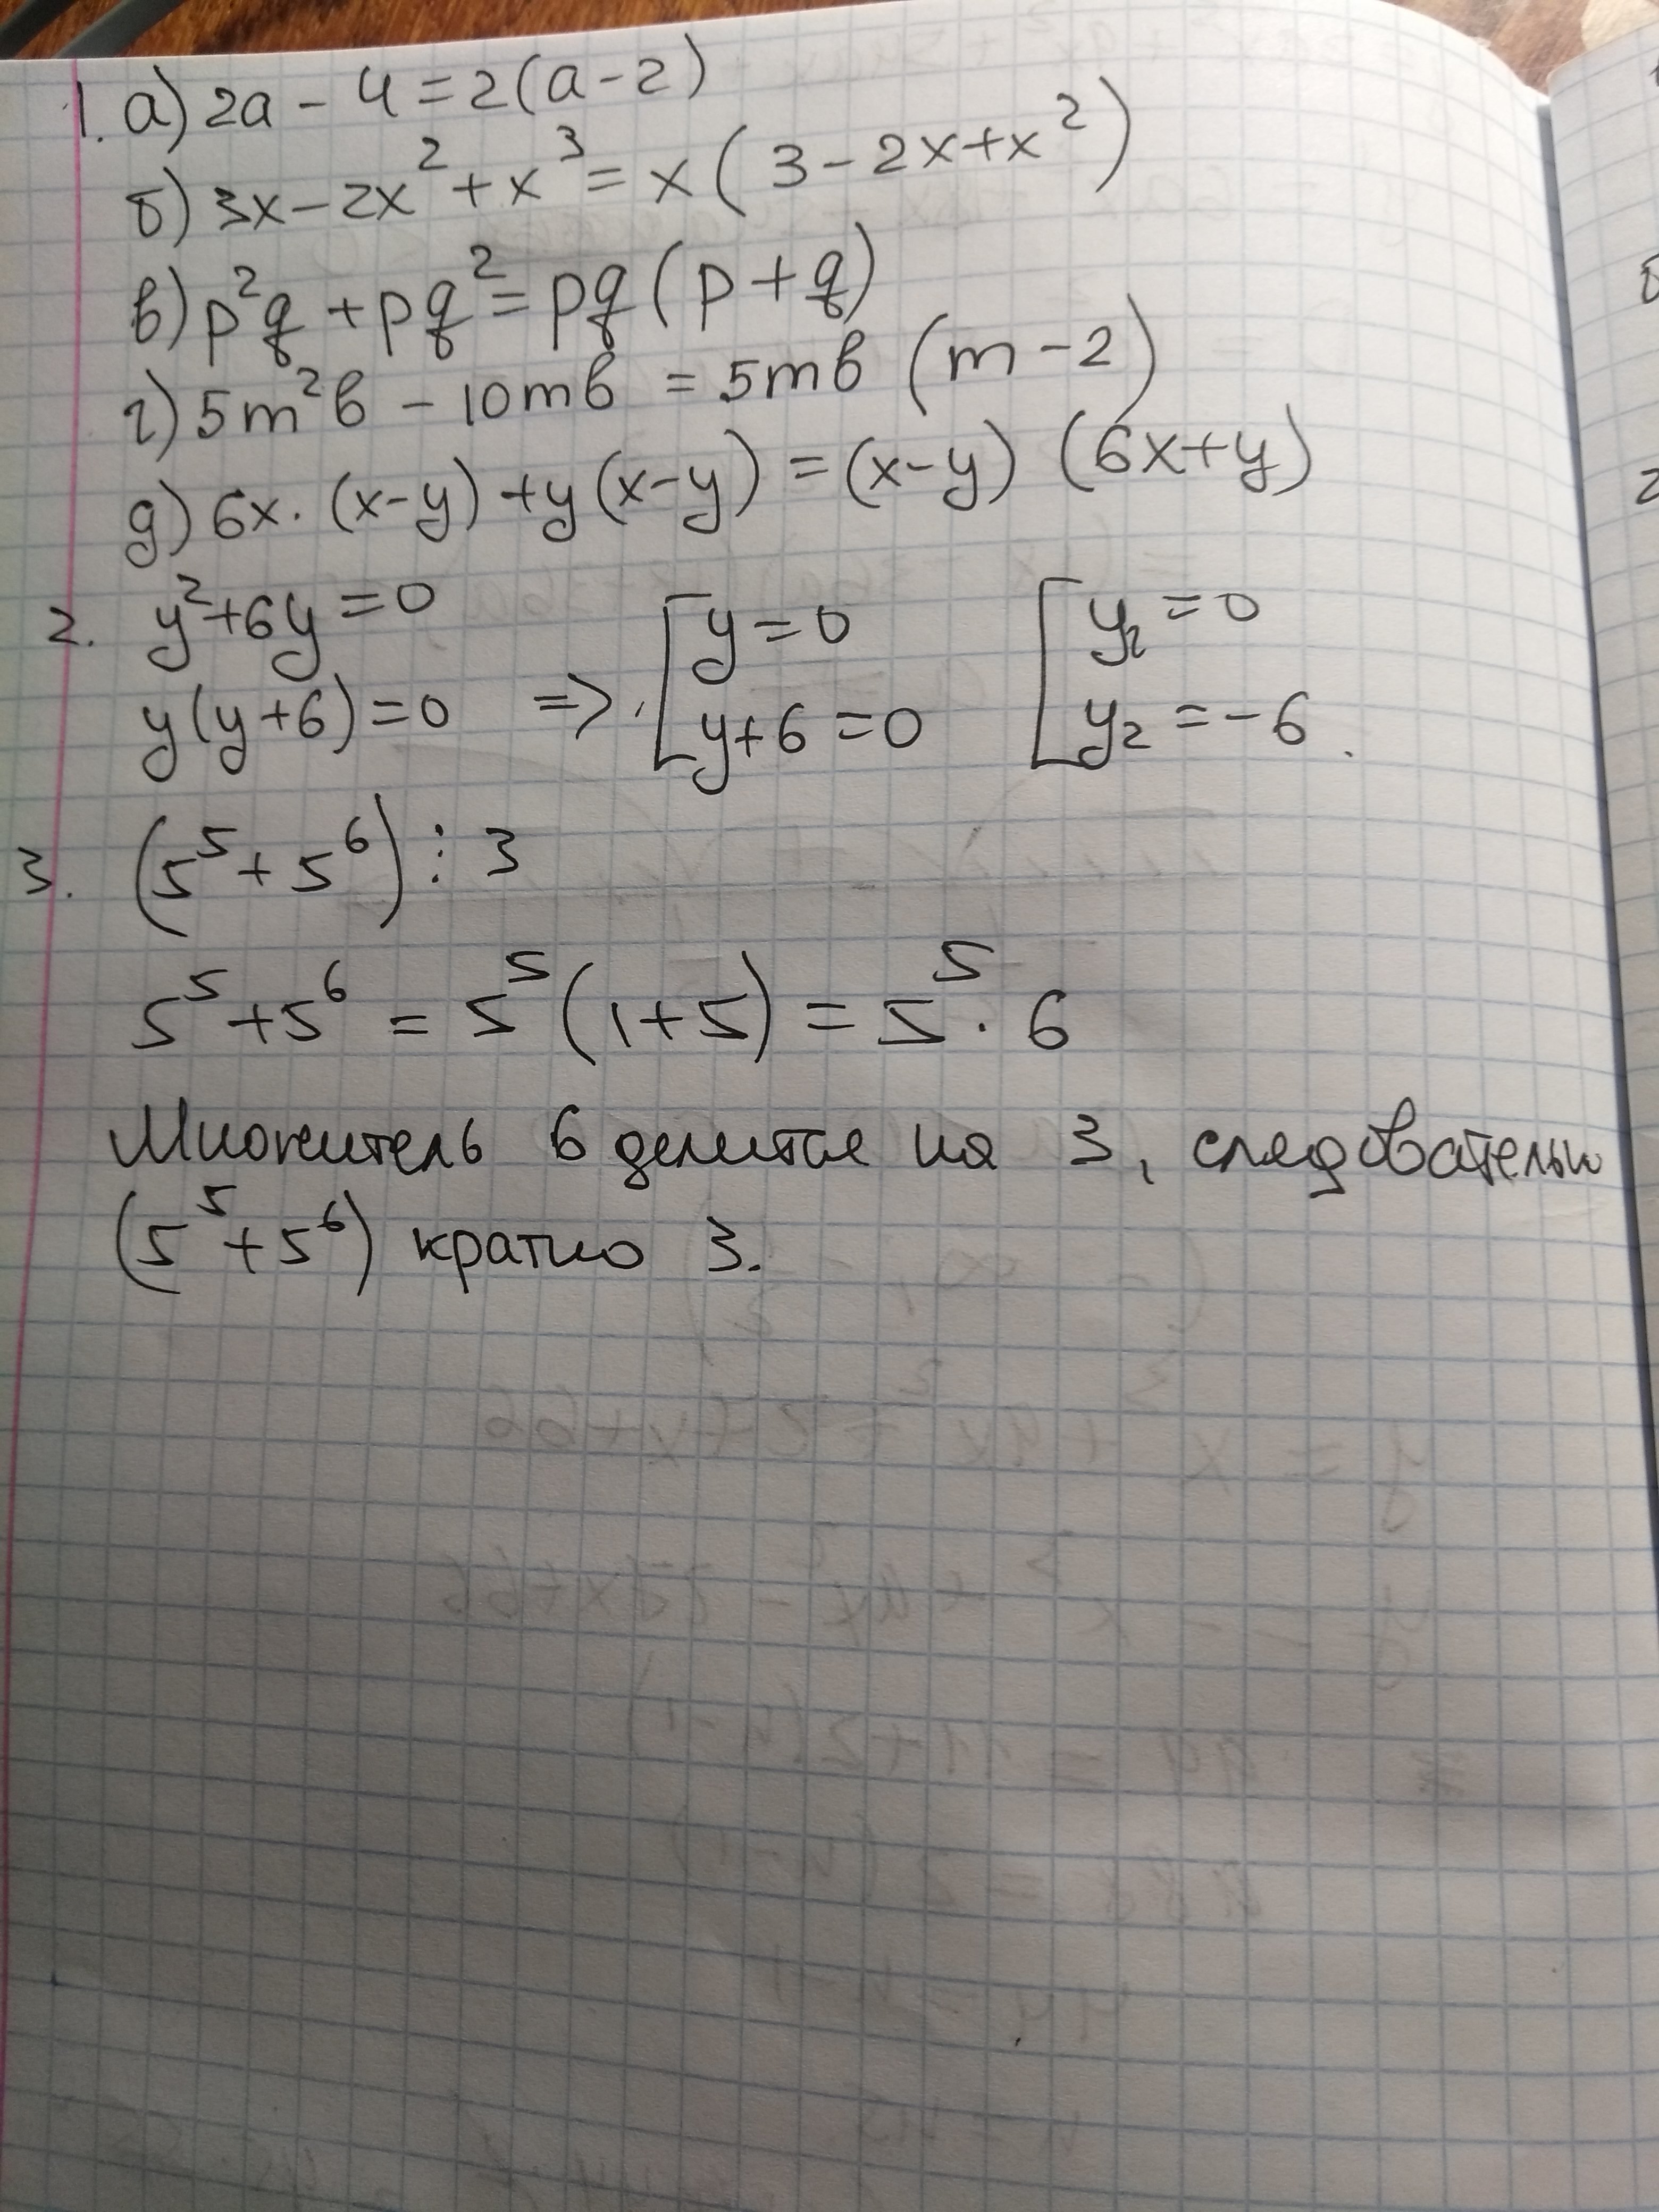 1. а) 2a - 4 = 2(a - 2)
б) 3x - 2x² + x³ = x(3 - 2x + x²)
в) p²q + pq² = pq(p + q)
г) 5m²b - 10mb = 5mb(m - 2)
д) 6x·(x-y) + y(x-y) = (x-y)(6x+y)
2. y² + 6y = 0
y(y+6) = 0 => [ y = 0 [ y₁ = 0
y+6 = 0 y₂ = -6.
3. (5⁵ + 5⁶) ⋮ 3
5⁵ + 5⁶ = 5⁵(1+5) = 5⁵·6
Множитель 6 делится на 3, следовательно
(5⁵ + 5⁶) кратно 3.